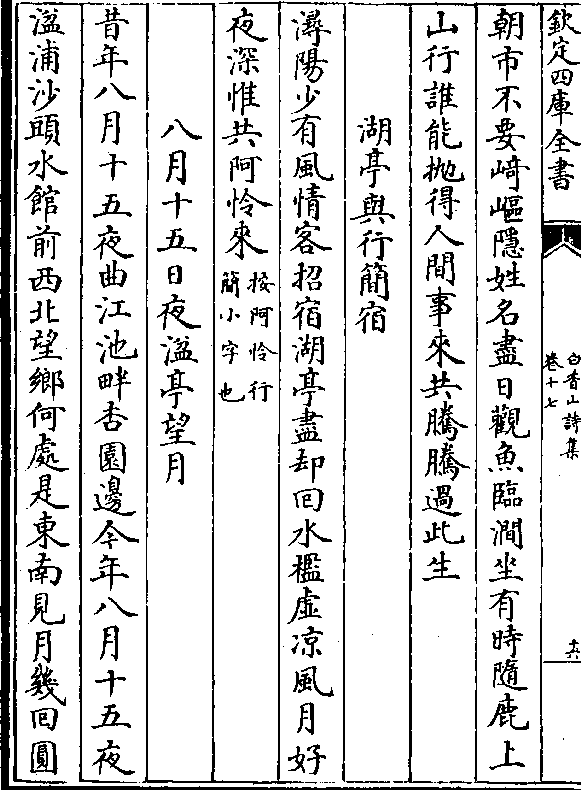 欽定四庫全書
白香山詩集
卷十七
十六
朝市不要﨑嶇隱姓名盡日觀魚臨澗坐有時隨鹿上
山行誰能抛得人間事來共騰騰過此生
湖亭與行簡宿
潯陽少有風情客招宿湖亭盡却回水檻虛凉風月好
夜深惟共阿怜來
按阿怜行
簡小字也
八月十五日夜湓亭望月
昔年八月十五夜曲江池畔杏園邊今年八月十五夜
湓浦沙頭水館前西北望鄉何處是東南見月幾回圓